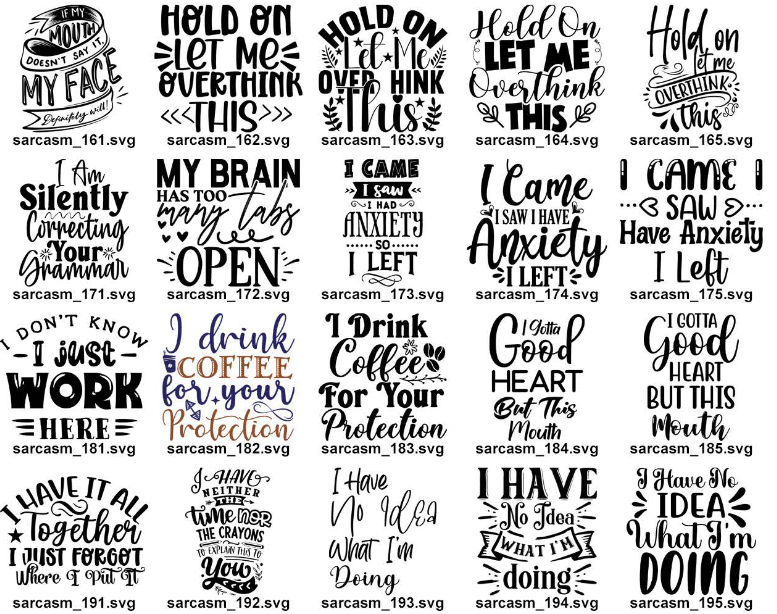 IF MY
MOUTH
DOESN'T SAY IT
MY FACE
Definitely will!
sarcasm_161.svg
HOLD ON
LET ME
OVERTHINK
THIS
sarcasm_162.svg
HOLD ON
Let Me
OVER HINK
This
sarcasm_163.svg
Hold On
LET ME
Overthink
THIS
sarcasm_164.svg
Hold on
let me
OVERTHINK
this
sarcasm_165.svg
I Am
Silently
Correcting
Your
Grammar
sarcasm_171.svg
MY BRAIN
HAS TOO
many tabs
OPEN
sarcasm_172.svg
I CAME
I saw
I HAD
ANXIETY
SO
I LEFT
sarcasm_173.svg
I Came
I SAW I HAVE
Anxiety
I LEFT
sarcasm_174.svg
I CAME I
SAW
Have Anxiety
I Left
sarcasm_175.svg
I DON'T KNOW
I just
WORK
HERE
sarcasm_181.svg
I drink
COFFEE
for your
Protection
sarcasm_182.svg
I Drink
Coffee
For Your
Protection
sarcasm_183.svg
I Gotta
Good
HEART
But This
Mouth
sarcasm_184.svg
I GOTTA
Good
HEART
BUT THIS
Mouth
sarcasm_185.svg
I HAVE IT ALL
Together
I JUST FORGOT
Where I Put It
sarcasm_191.svg
I HAVE
NEITHER
THE
TIME NOR
THE CRAYONS
TO EXPLAIN THIS TO
You
sarcasm_192.svg
I Have
No Idea
What I'm
Doing
sarcasm_193.svg
I HAVE
No Idea
WHAT I'M
doing
sarcasm_194.svg
I Have No
IDEA
What I'm
DOING
sarcasm_195.svg